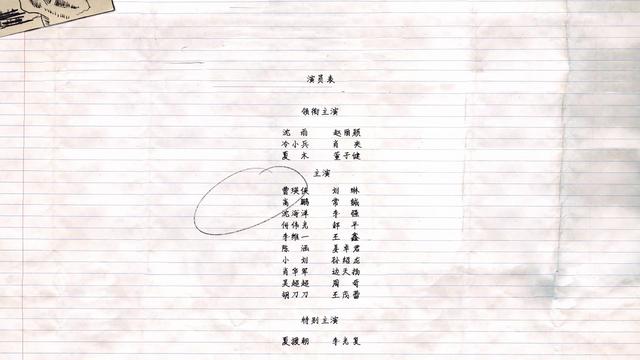 演员表
领衔主演
沈 雨 赵丽颖
冷小兵 肖 爽
夏 木 董子健
主演
曹瑛侠 刘 琳
高 鹏 常 铖
沈海洋 李 强
何伟光 郝 平
李维一 王 鑫
陈 涵 姜卓君
小 刘 孙绍龙
肖华军 边天扬
吴超超 周 奇
胡刀刀 王茂蕾
特别主演
夏援朝 李光复